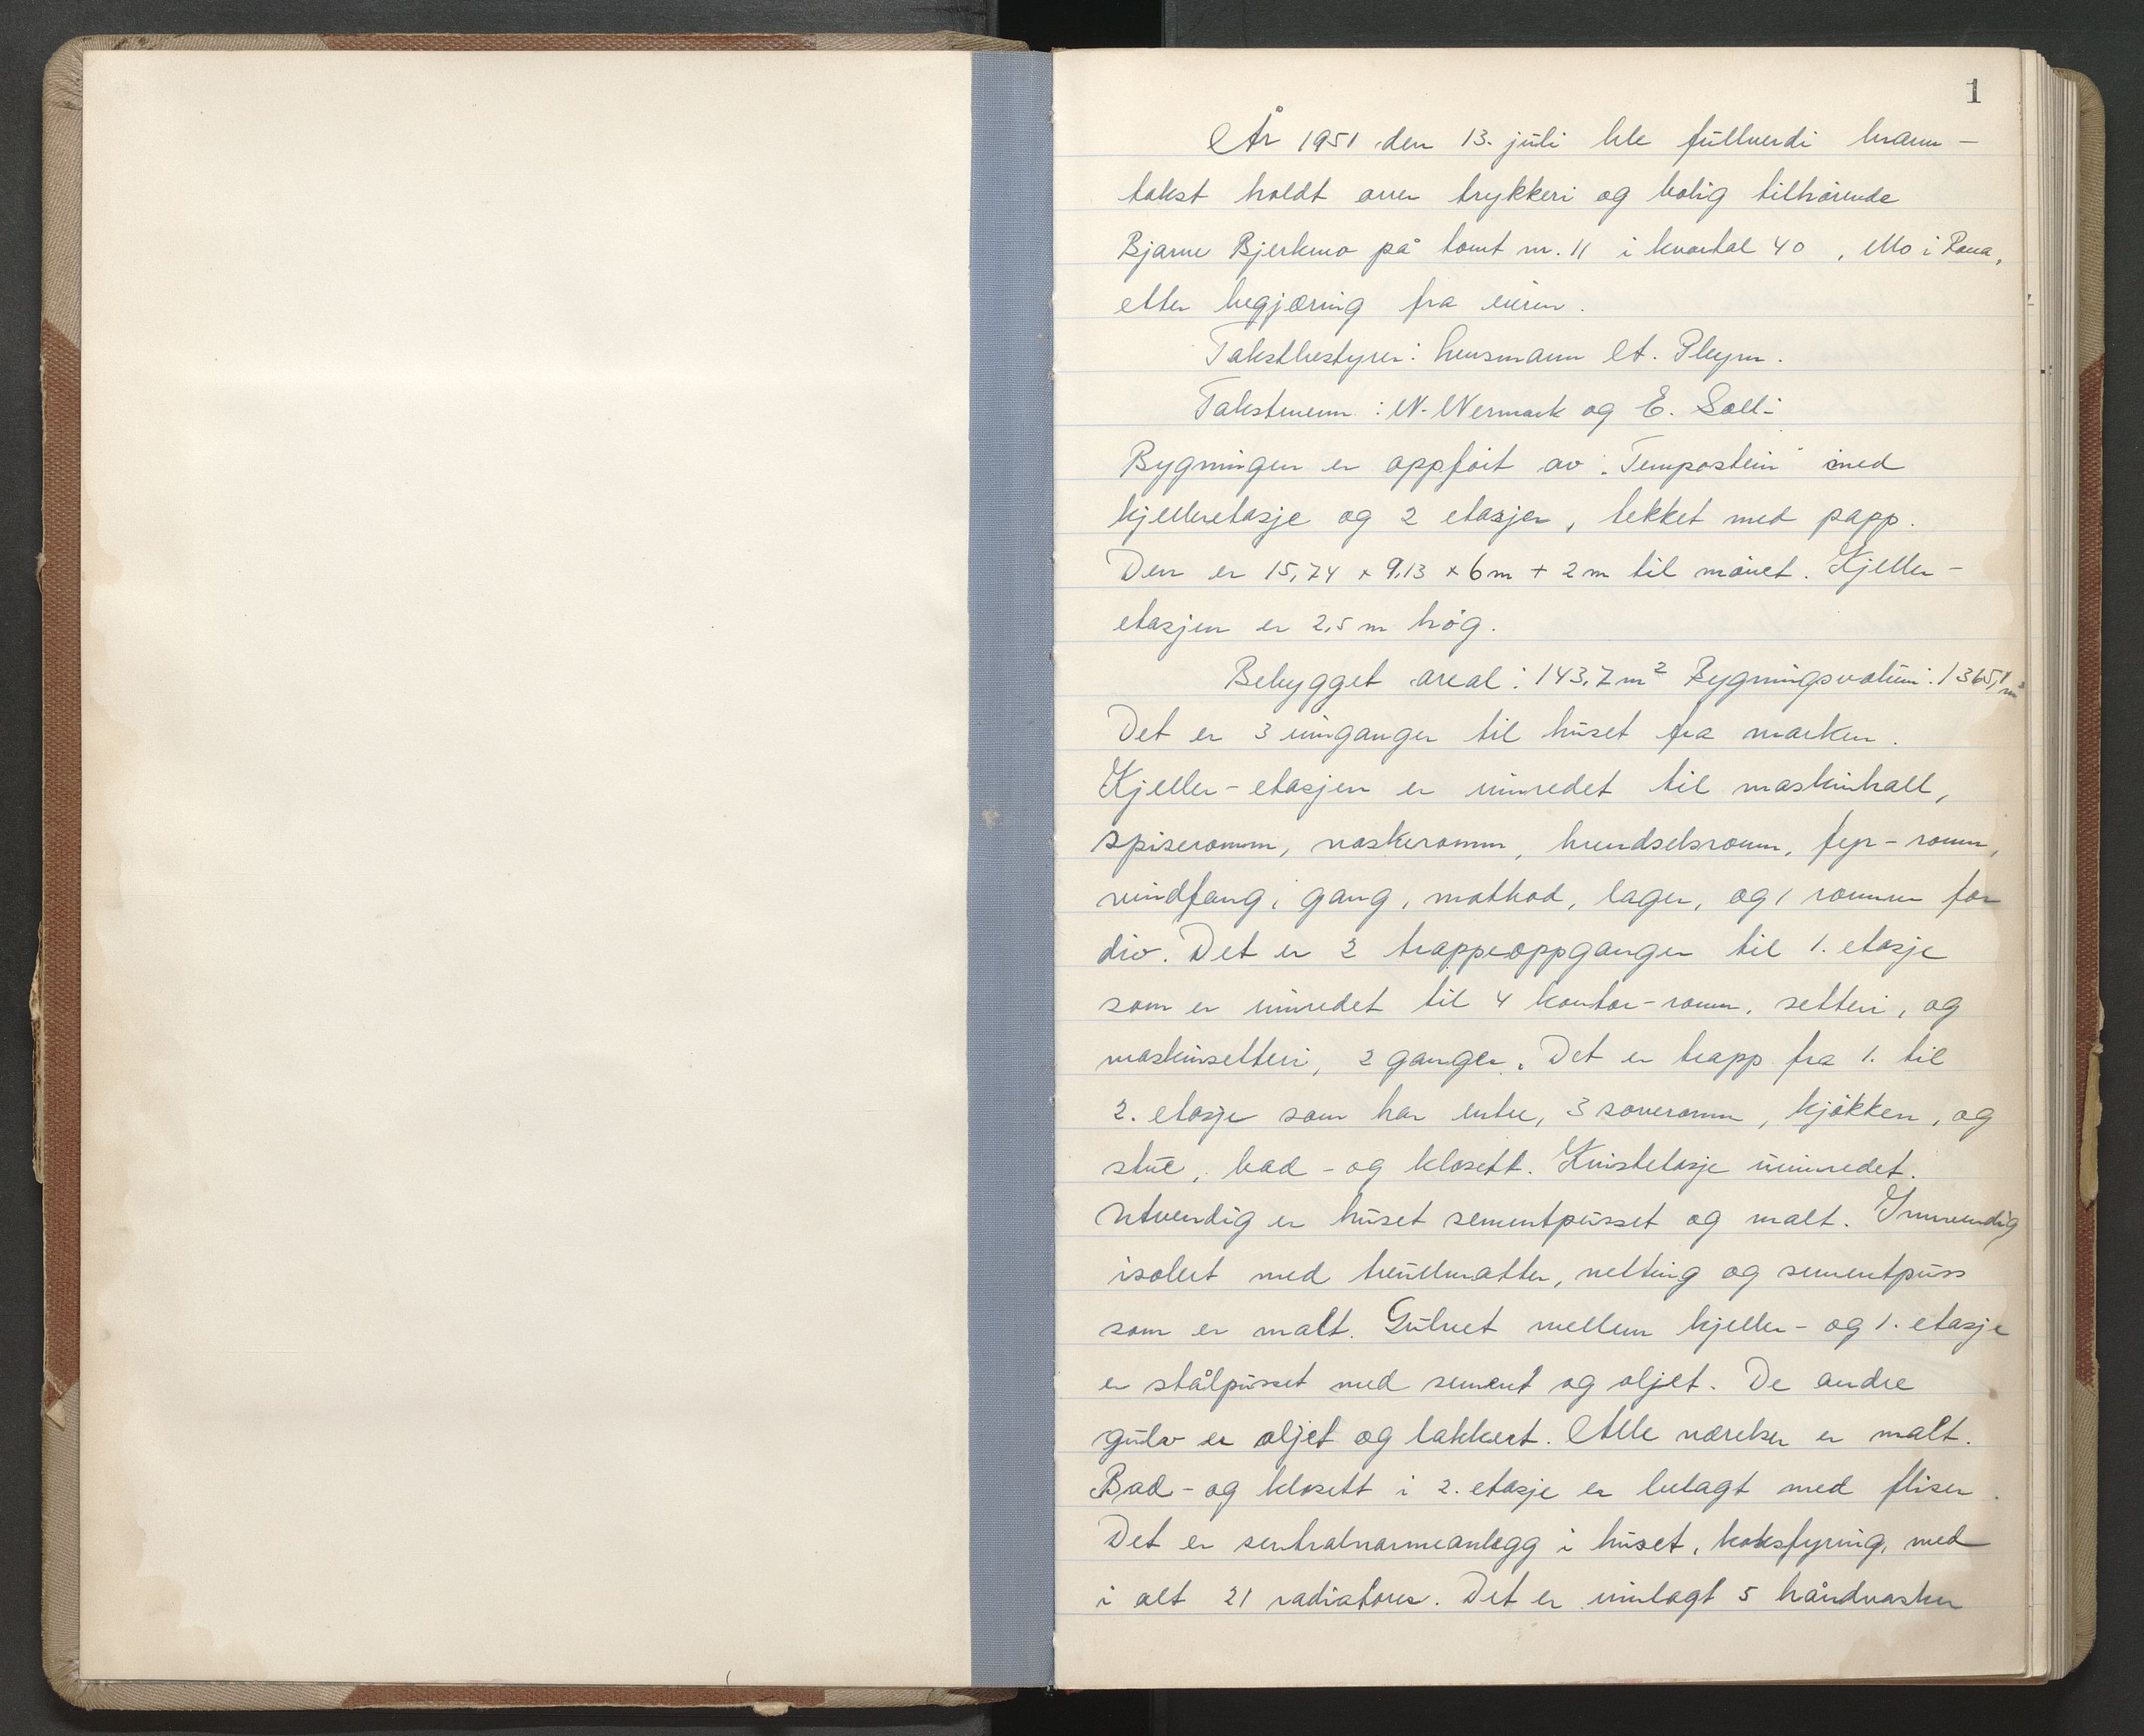 1
År 1951 den 13. juli ble fullverdi brann-
takst holdt over trykkeri og bolig tilhørende
Bjarne Bjerkmo på tomt nr. 11 i kvartal 40, Mo i Rana,
etter begjæring fra eieren.
Takstbestyrer: lensmann A. Pleym.
Takstmenn: N. Nermark og E. Solli
Bygningen er oppført av "Tempostein" med
kjelleretasje og 2 etasjer, tekket med papp.
Den er 15,74 x 9,13 x 6 m + 2 m til mønet. Kjeller-
etasjen er 2,5 m høg.
Bebygget areal: 143,7 m² Bygningsvolum: 1365,1 m³
Det er 3 innganger til huset fra marken.
Kjeller-etasjen er innredet til maskinhall,
spiseromm, vaskeromm, brendselsromm, fyr-romm,
vindfang, gang, matbod, lager, og 1 rommer for
div. Det er 2 trappeoppganger til 1. etasje
som er innredet til 4 kontor-romm, setteri, og
maskinsetteri, 2 ganger. Det er trapp fra 1. til
2. etasje som har entre, 3 soveromm, kjøkken, og
stue, bad- og klosett. Kvistetasje uinnredet.
Utvendig er huset sementpusset og malt. Innvendig
isolert med treullmatter, netting og sementpuss
som er malt. Gulvet mellem kjeller- og 1. etasje
er stålpusset med sement og oljet. De andre
gulv er oljet og lakkert. Alle værelser er malt.
Bad- og klosett i 2. etasje er belagt med fliser.
Det er sentralvarmeanlegg i huset, koksfyring, med
i alt 21 radiatorer. Det er innlagt 5 håndvasker